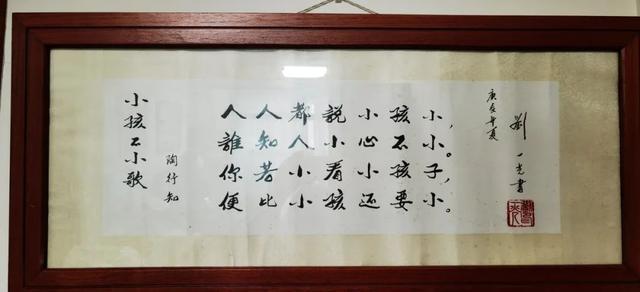 小孩不小歌
陶行知
人人都說小孩小，
誰知人小心不小。
你若小看小孩子，
便比小孩还要小。
庚辰年夏
一光書